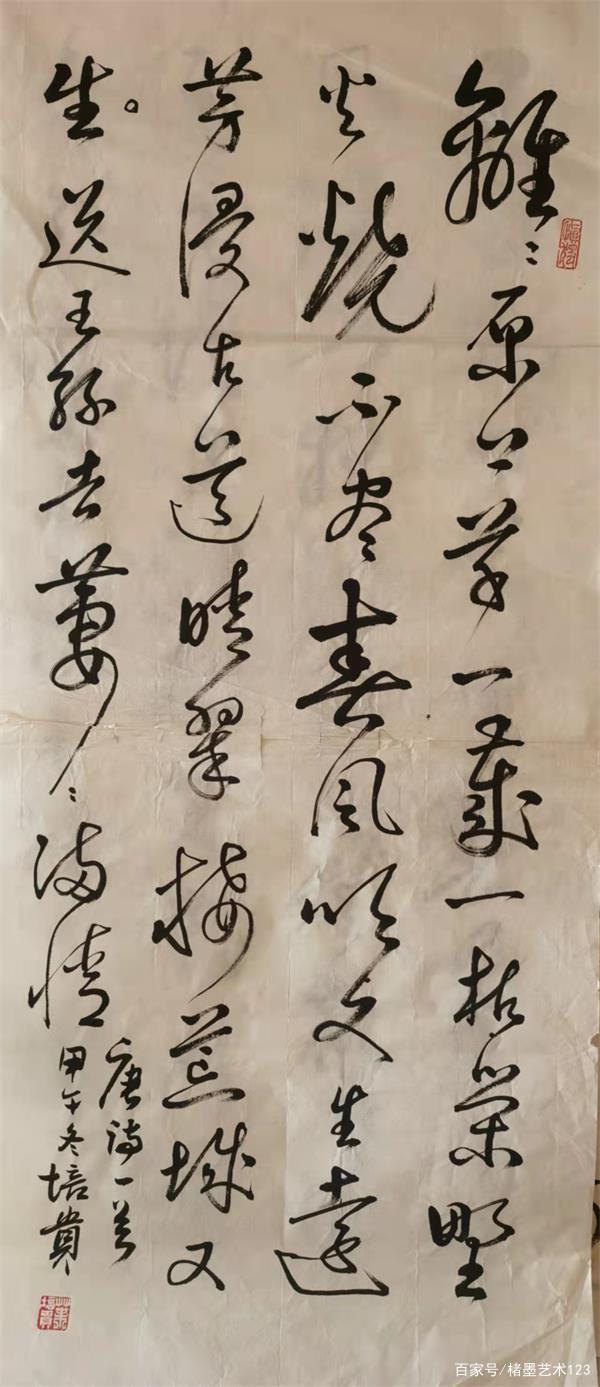 離〻原上草一歲一枯榮野
火燒不尽春风吹又生遠
芳侵古道晴翠接荒城又
生。送王孫去萋〻滿情
唐詩一首
甲午冬培貴
百家号/楮墨艺术123